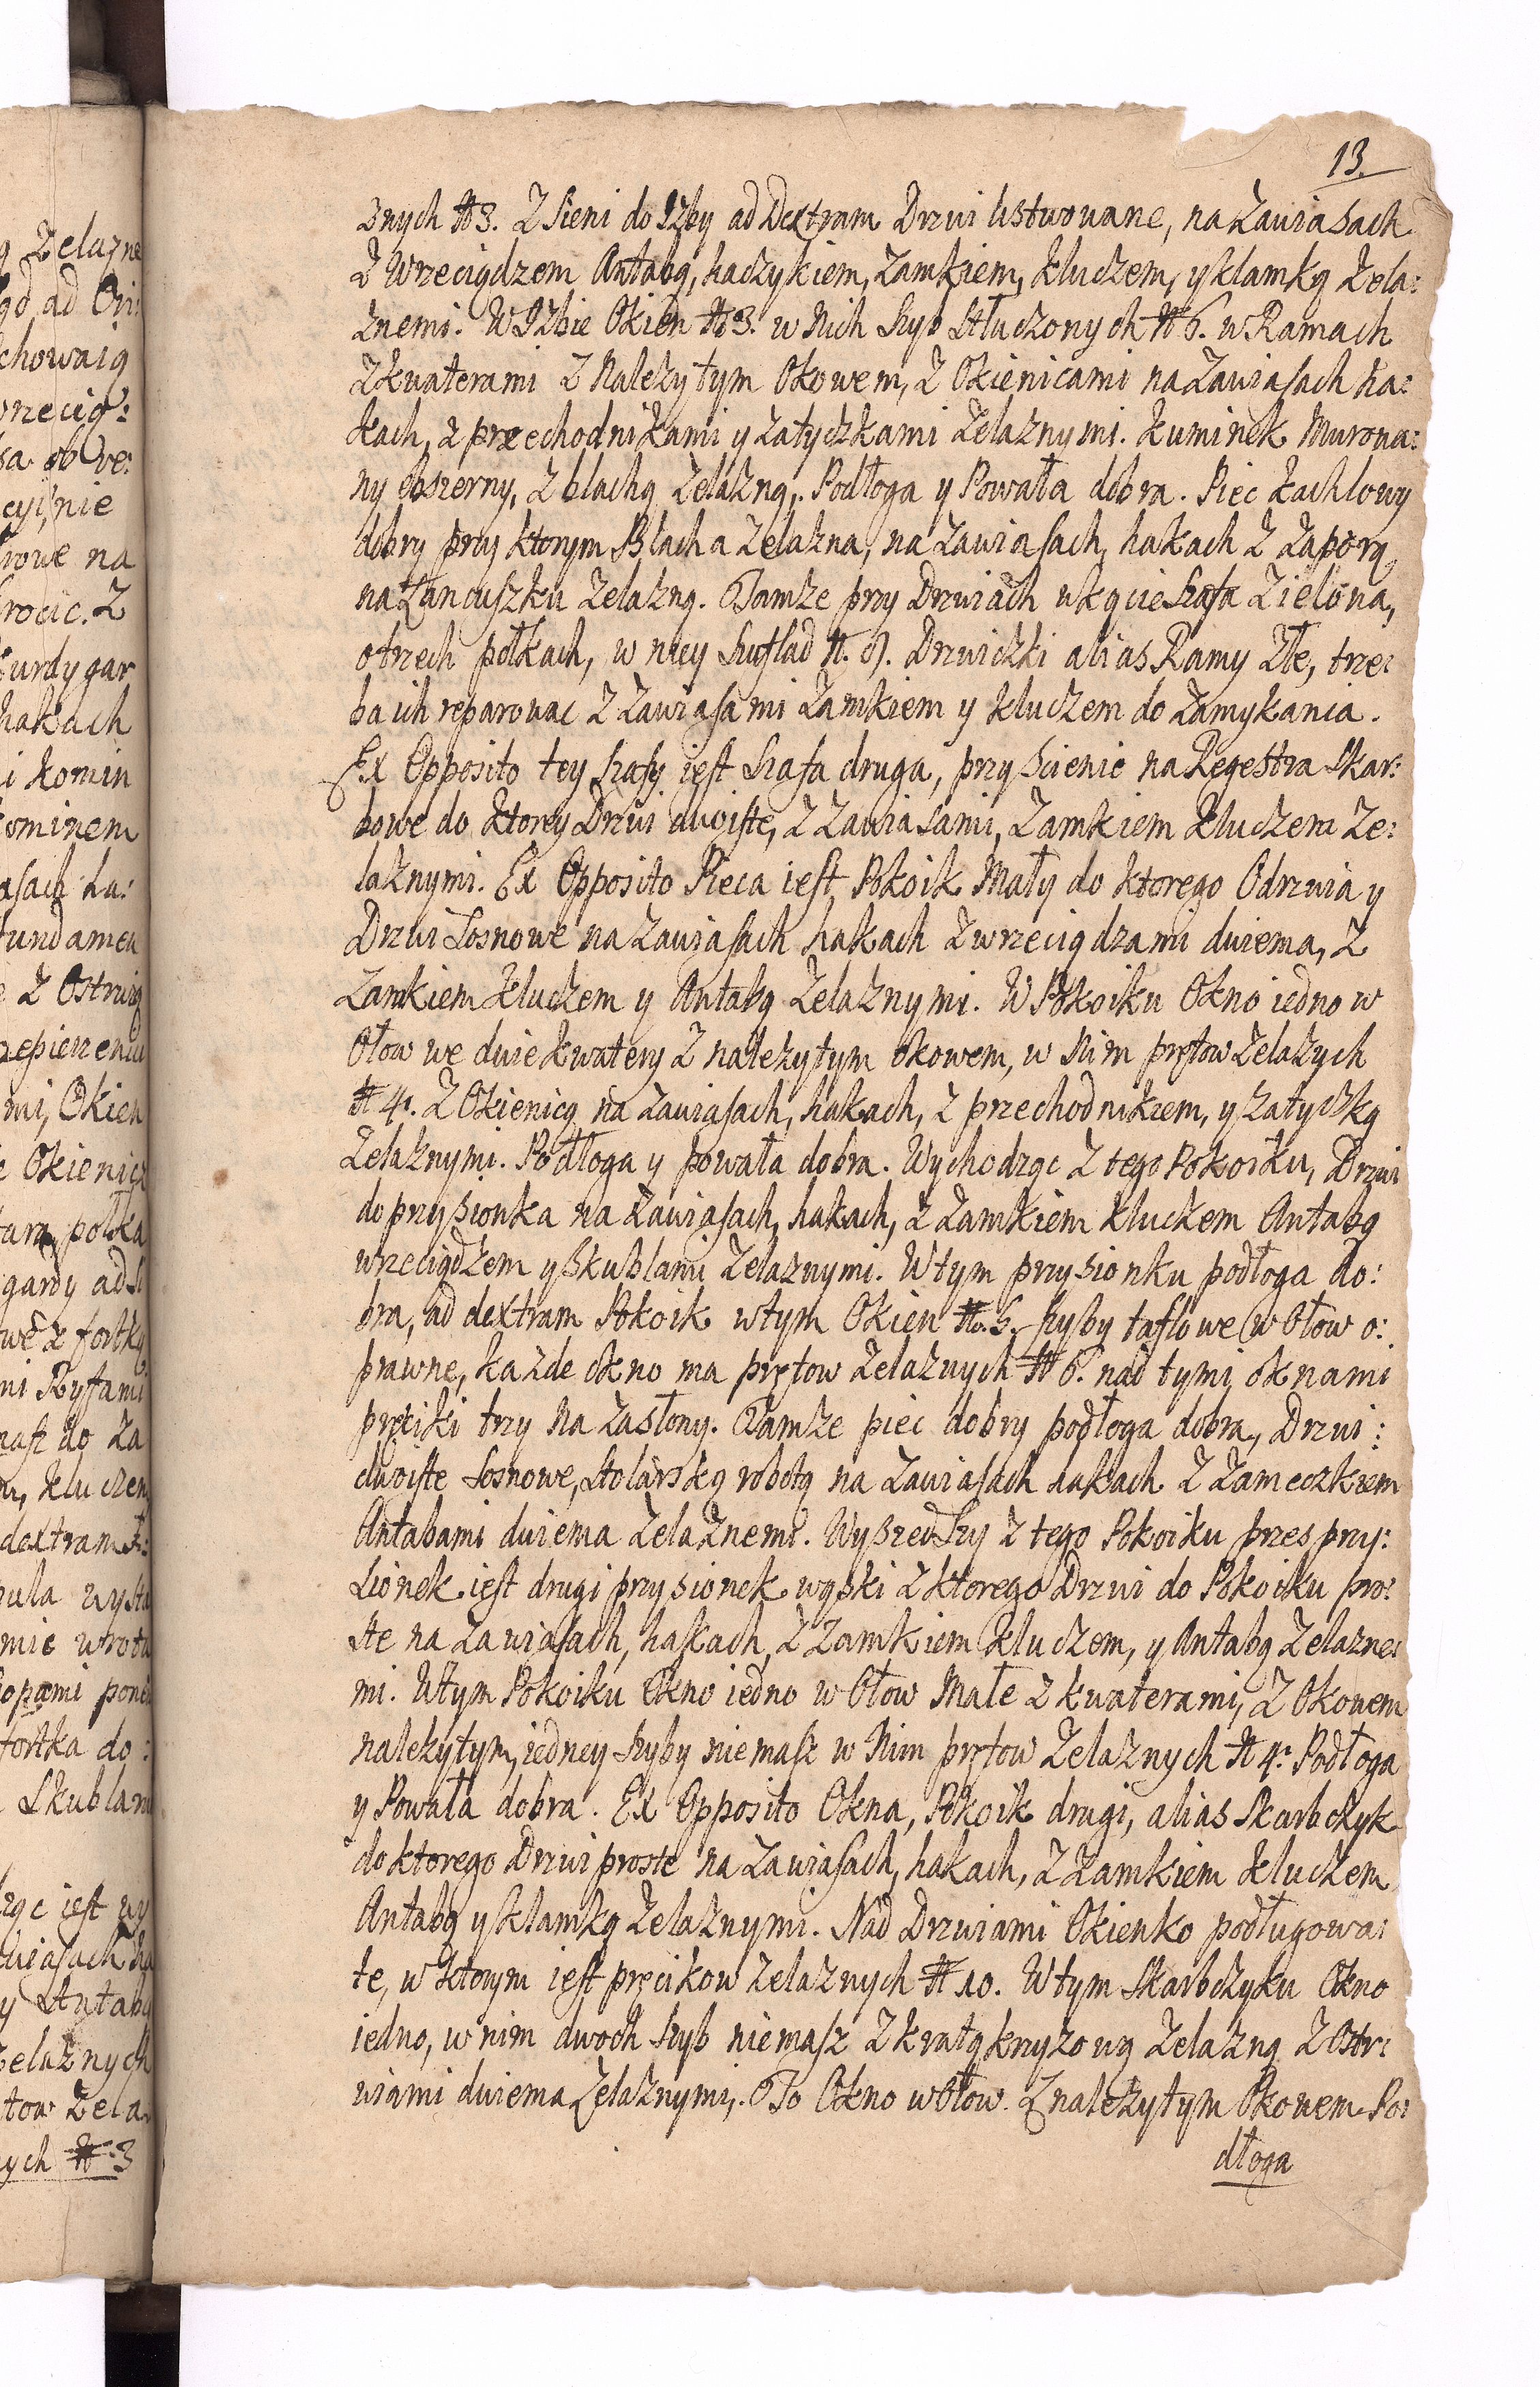 13.
znych № 3. Z Sieni do Izby ad Dextram Drzwi listwowane, na Zawiasach
Z Wrzeciądzem Antabą, haczykiem, Zamkiem, kluczem, y klamką Żela:
znemi. W Izbie Okien № 3. w Nich Szyb Stłuczonych № 6. w Ramach
Z kwaterami Z Należytym Okowem, Z Okienicami na Zawiasach ha:
kach, z przechodnikami y Zatyczkami Żelaznymi. Kuminek Murowa:
ny obszerny, Z blachą Żelazną. Podłoga y Powała dobra. Piec kachlowy
dobry przy ktorym Blacha Żelazna, na Zawiasach, hakach Z Zaporą,
na Łancuszku Żelazną. Tamże przy Drzwiach w kącie Szafa Zielona,
o trzech połkach, w niey Szuflad №. 9. Drzwiczki alias Ramy Złe, trze:
ba ich reparowac Z Zawiasami Zamkiem y kluczem do Zamykania.
Ex Opposito tey Szafy iest Szafa druga, przy Scienie na Regestra Skar:
bowe do ktorey Drzwi dwoiste, Z Zawiasami, Zamkiem kluczem Że:
laznymi. Ex Opposito Pieca iest Pokoik Mały do ktorego Odrzwia y
Drzwi Sosnowe na Zawiasach hakach Z wrzeciądzami dwiema, Z
Zamkiem kluczem y Antabą Żelaznymi. W Pokoiku Okno iedno w
Ołow we dwie kwatery Z należytym okowem, w Nim prętow Żelazych
№ 4. Z Okienicą na Zawiasach, hakach, z przechodnikiem, y zatyczką
Żelaznymi. Podłoga y powała dobra. Wychodząc Z tego Pokoiku, Drzwi
do przysionka na Zawiasach, hakach, Z Zamkiem kluczem Antabą
wrzeciądzem y Skublami Żelaznymi. W tym przysionku podłoga do:
bra, ad dextram Pokoik w tym Okien №. 5. Szyby taflowe w Ołow o:
prawne, każde okno ma prętow Żelaznych № 6. nad tymi oknami
pręciki trzy na Zasłony. Tamże piec dobry podłoga dobra, Drzwi:
dwoiste Sosnowe, Stolarską robotą na Zawiasach hakach Z Zameczkiem
Antabami dwiema Żelaznemi. Wyszedszy Z tego Pokoiku przes przy:
sionek iest drugi przysionek wąski Z ktorego Drzwi do Pokoiku pro:
ste na Zawiasach, hakach, Z Zamkiem kluczem, y Antabą Żelazne:
mi. W tym Pokoiku Okno iedno w Ołow Małe Z kwaterami, Z Okowem
należytym, iedney Szyby niemasz w Nim prętow Żelaznych № 4. Podłoga
y Powała dobra. Ex Opposito Okna, Pokoik drugi, alias Skarbczyk
do ktorego Drzwi proste na Zawiasach, hakach, Z Zamkiem kluczem
Antabą y klamką Żelaznymi. Nad Drzwiami Okienko podługowa:
te, w ktorym iest pręcikow żelaznych № 10. W tym Skarbczyku Okno
iedno, w nim dwoch Szyb niemasz Z kratą krzyzową Żelazną Z Ostr:
wiami dwiema Żelaznymi. To Okno w Ołow. Z należytym Okowem Po:
dłoga